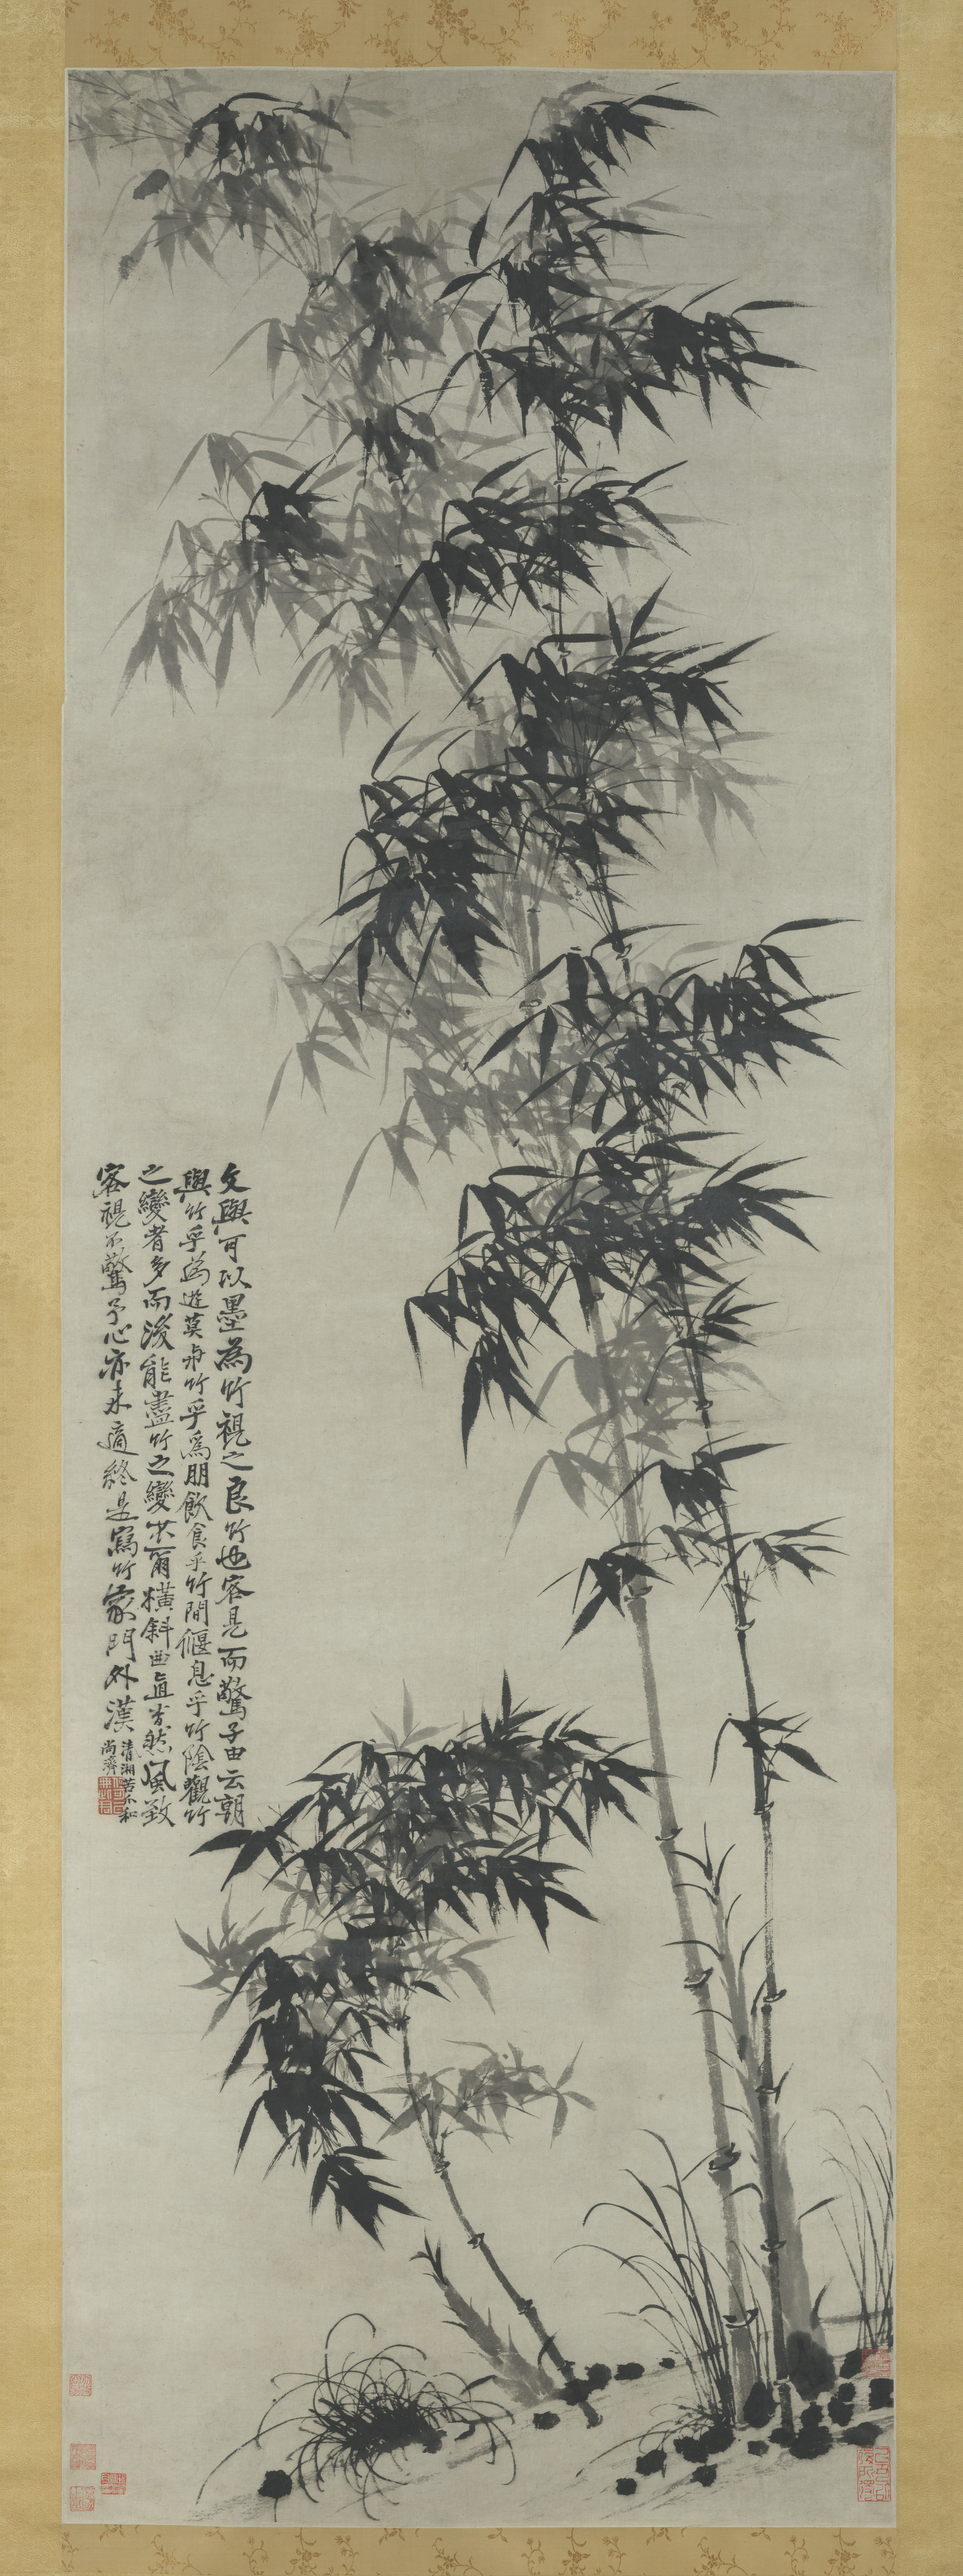 文與可以墨為竹視之良竹也客見而驚子由云朝
與竹乎為遊莫與竹乎為朋飲食乎竹間偃息乎竹陰觀竹
之變者多而後能盡竹之變爾橫斜曲直杳然風致
客視不驚予心亦未適終是寫竹家門外漢
清湘苦瓜和
尚濟